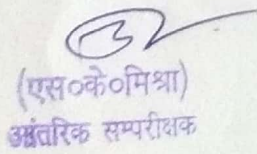 (एस०के०मिश्रा)
आंतरिक सम्परीक्षक